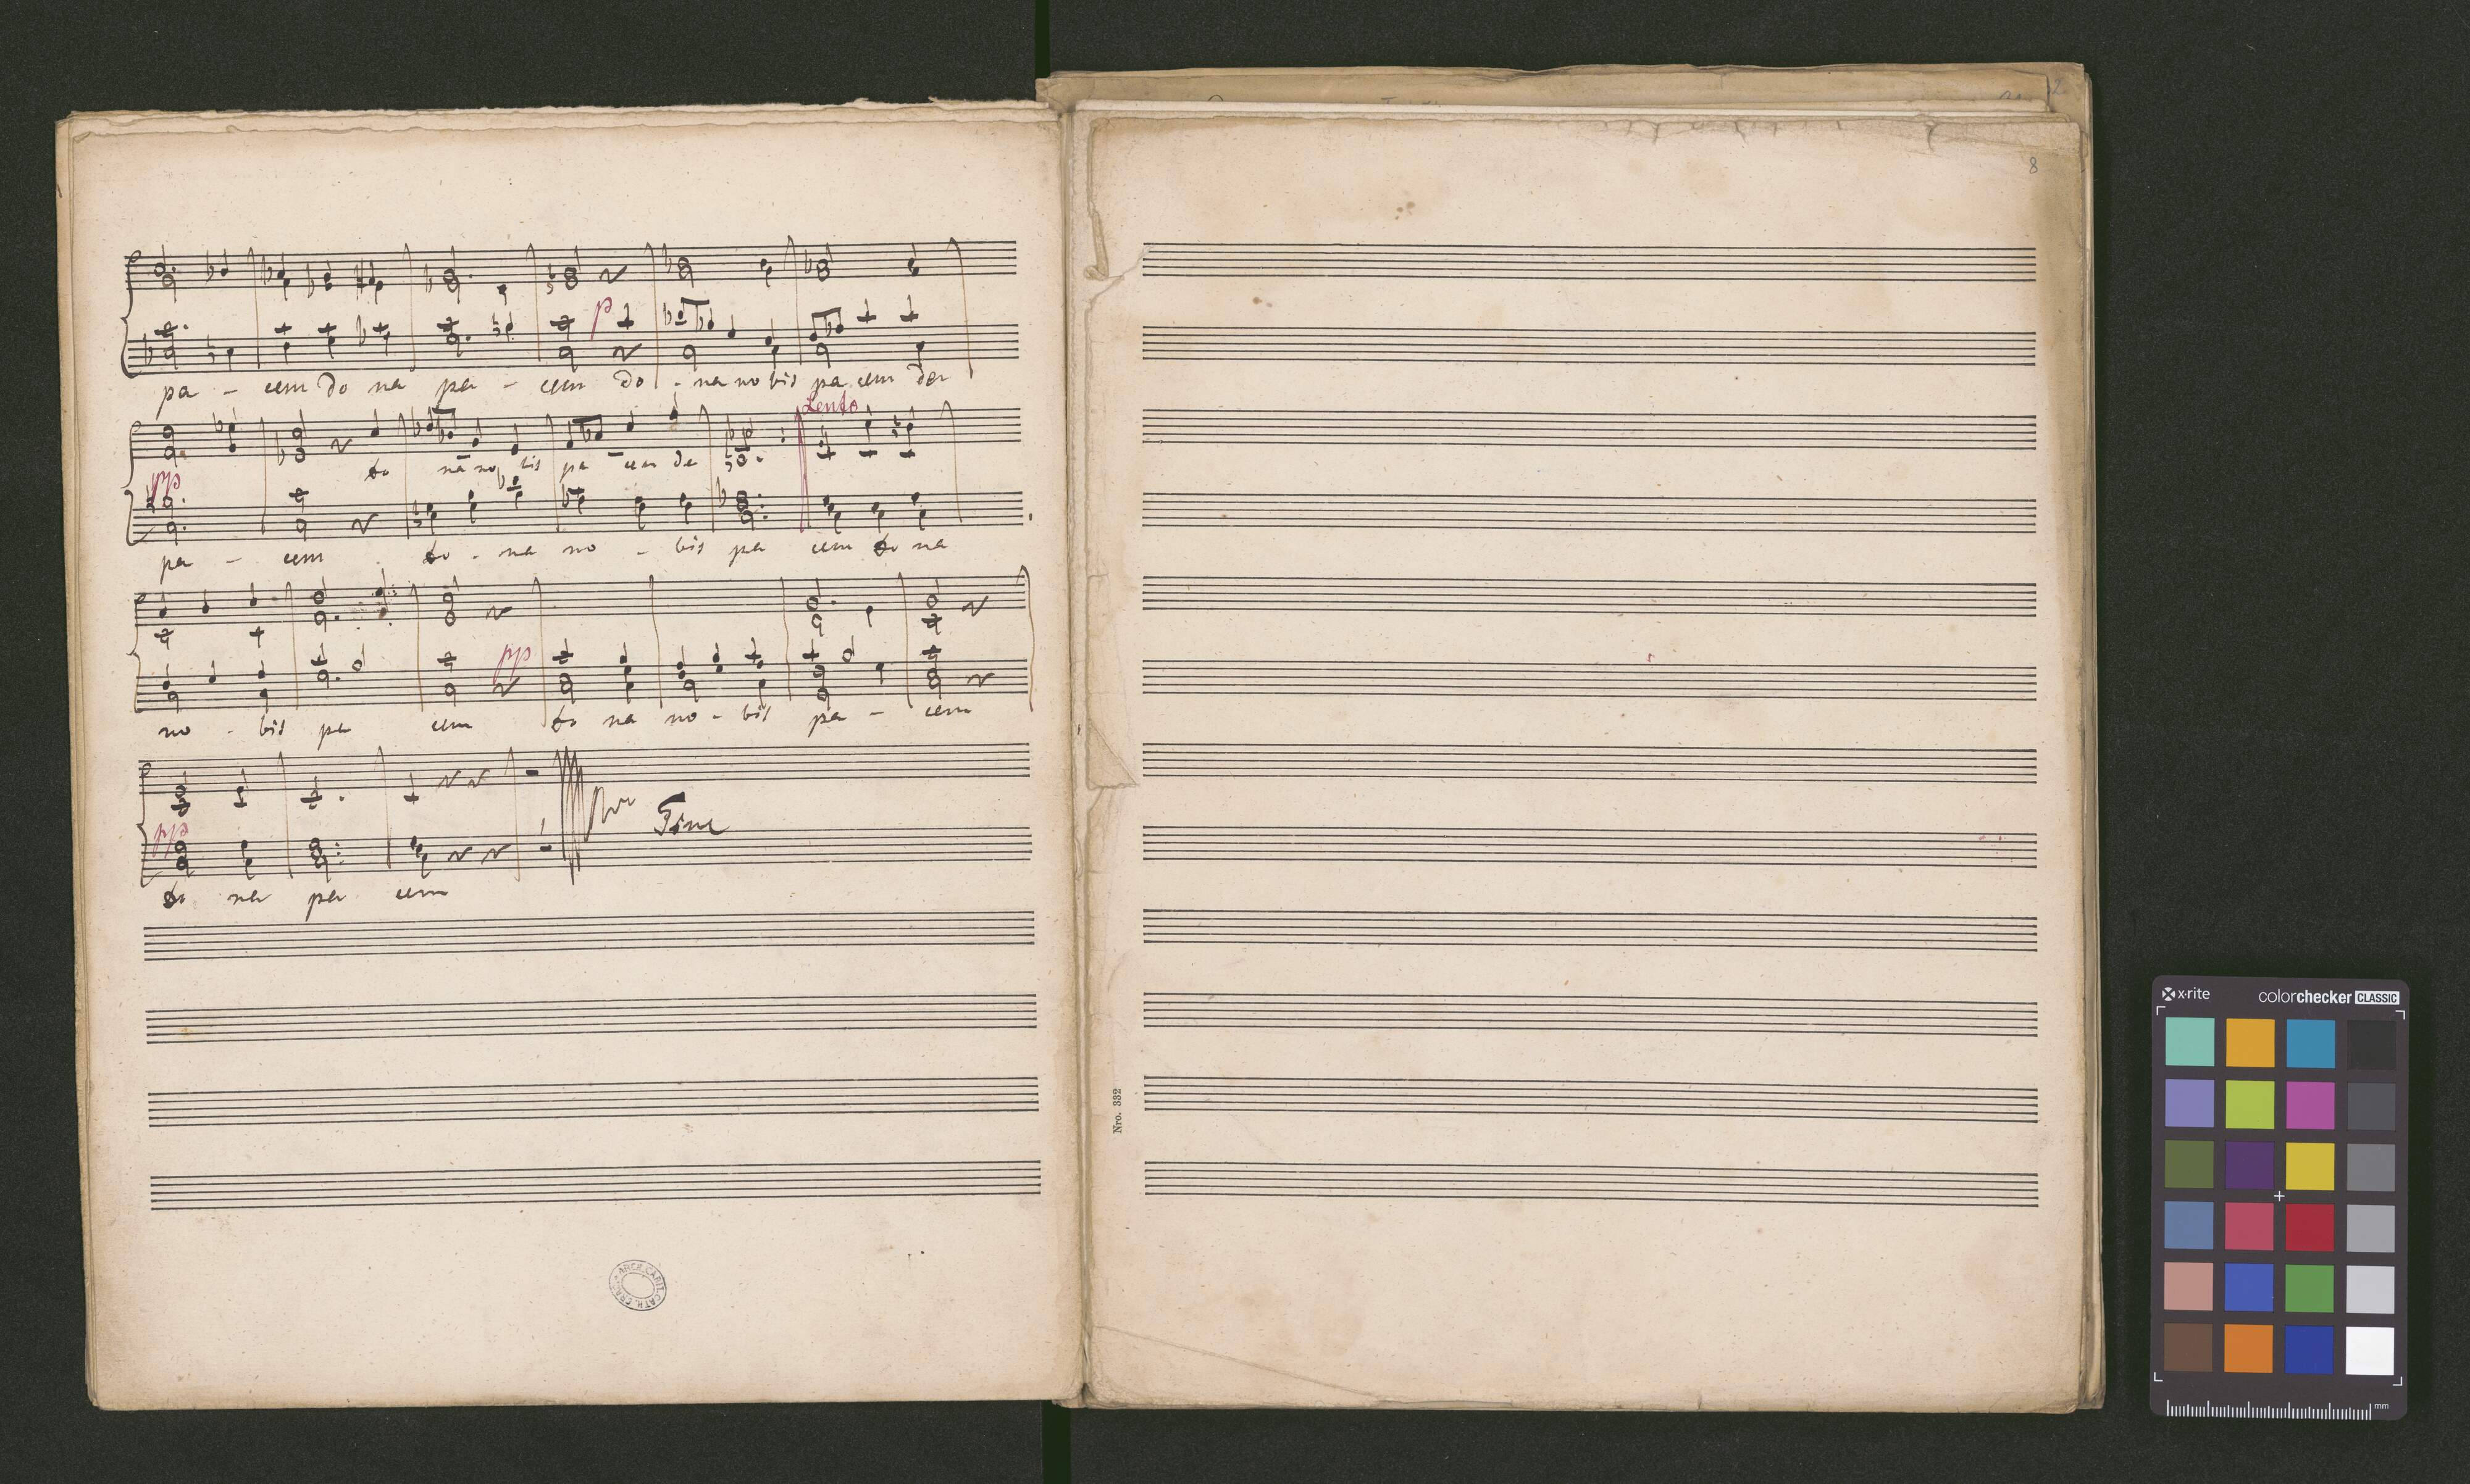 p
pa - cem do na pa - cem do - na no bis pa cem do
Lento
do na no bis pa cem do
pp
pa - cem do - na no - bis pa cem do na
pp
no - bis pa cem do na no - bis pa - cem
Fine
pp
do na pa cem
8
2
Nro. 332
x-rite colorchecker CLASSIC
mm